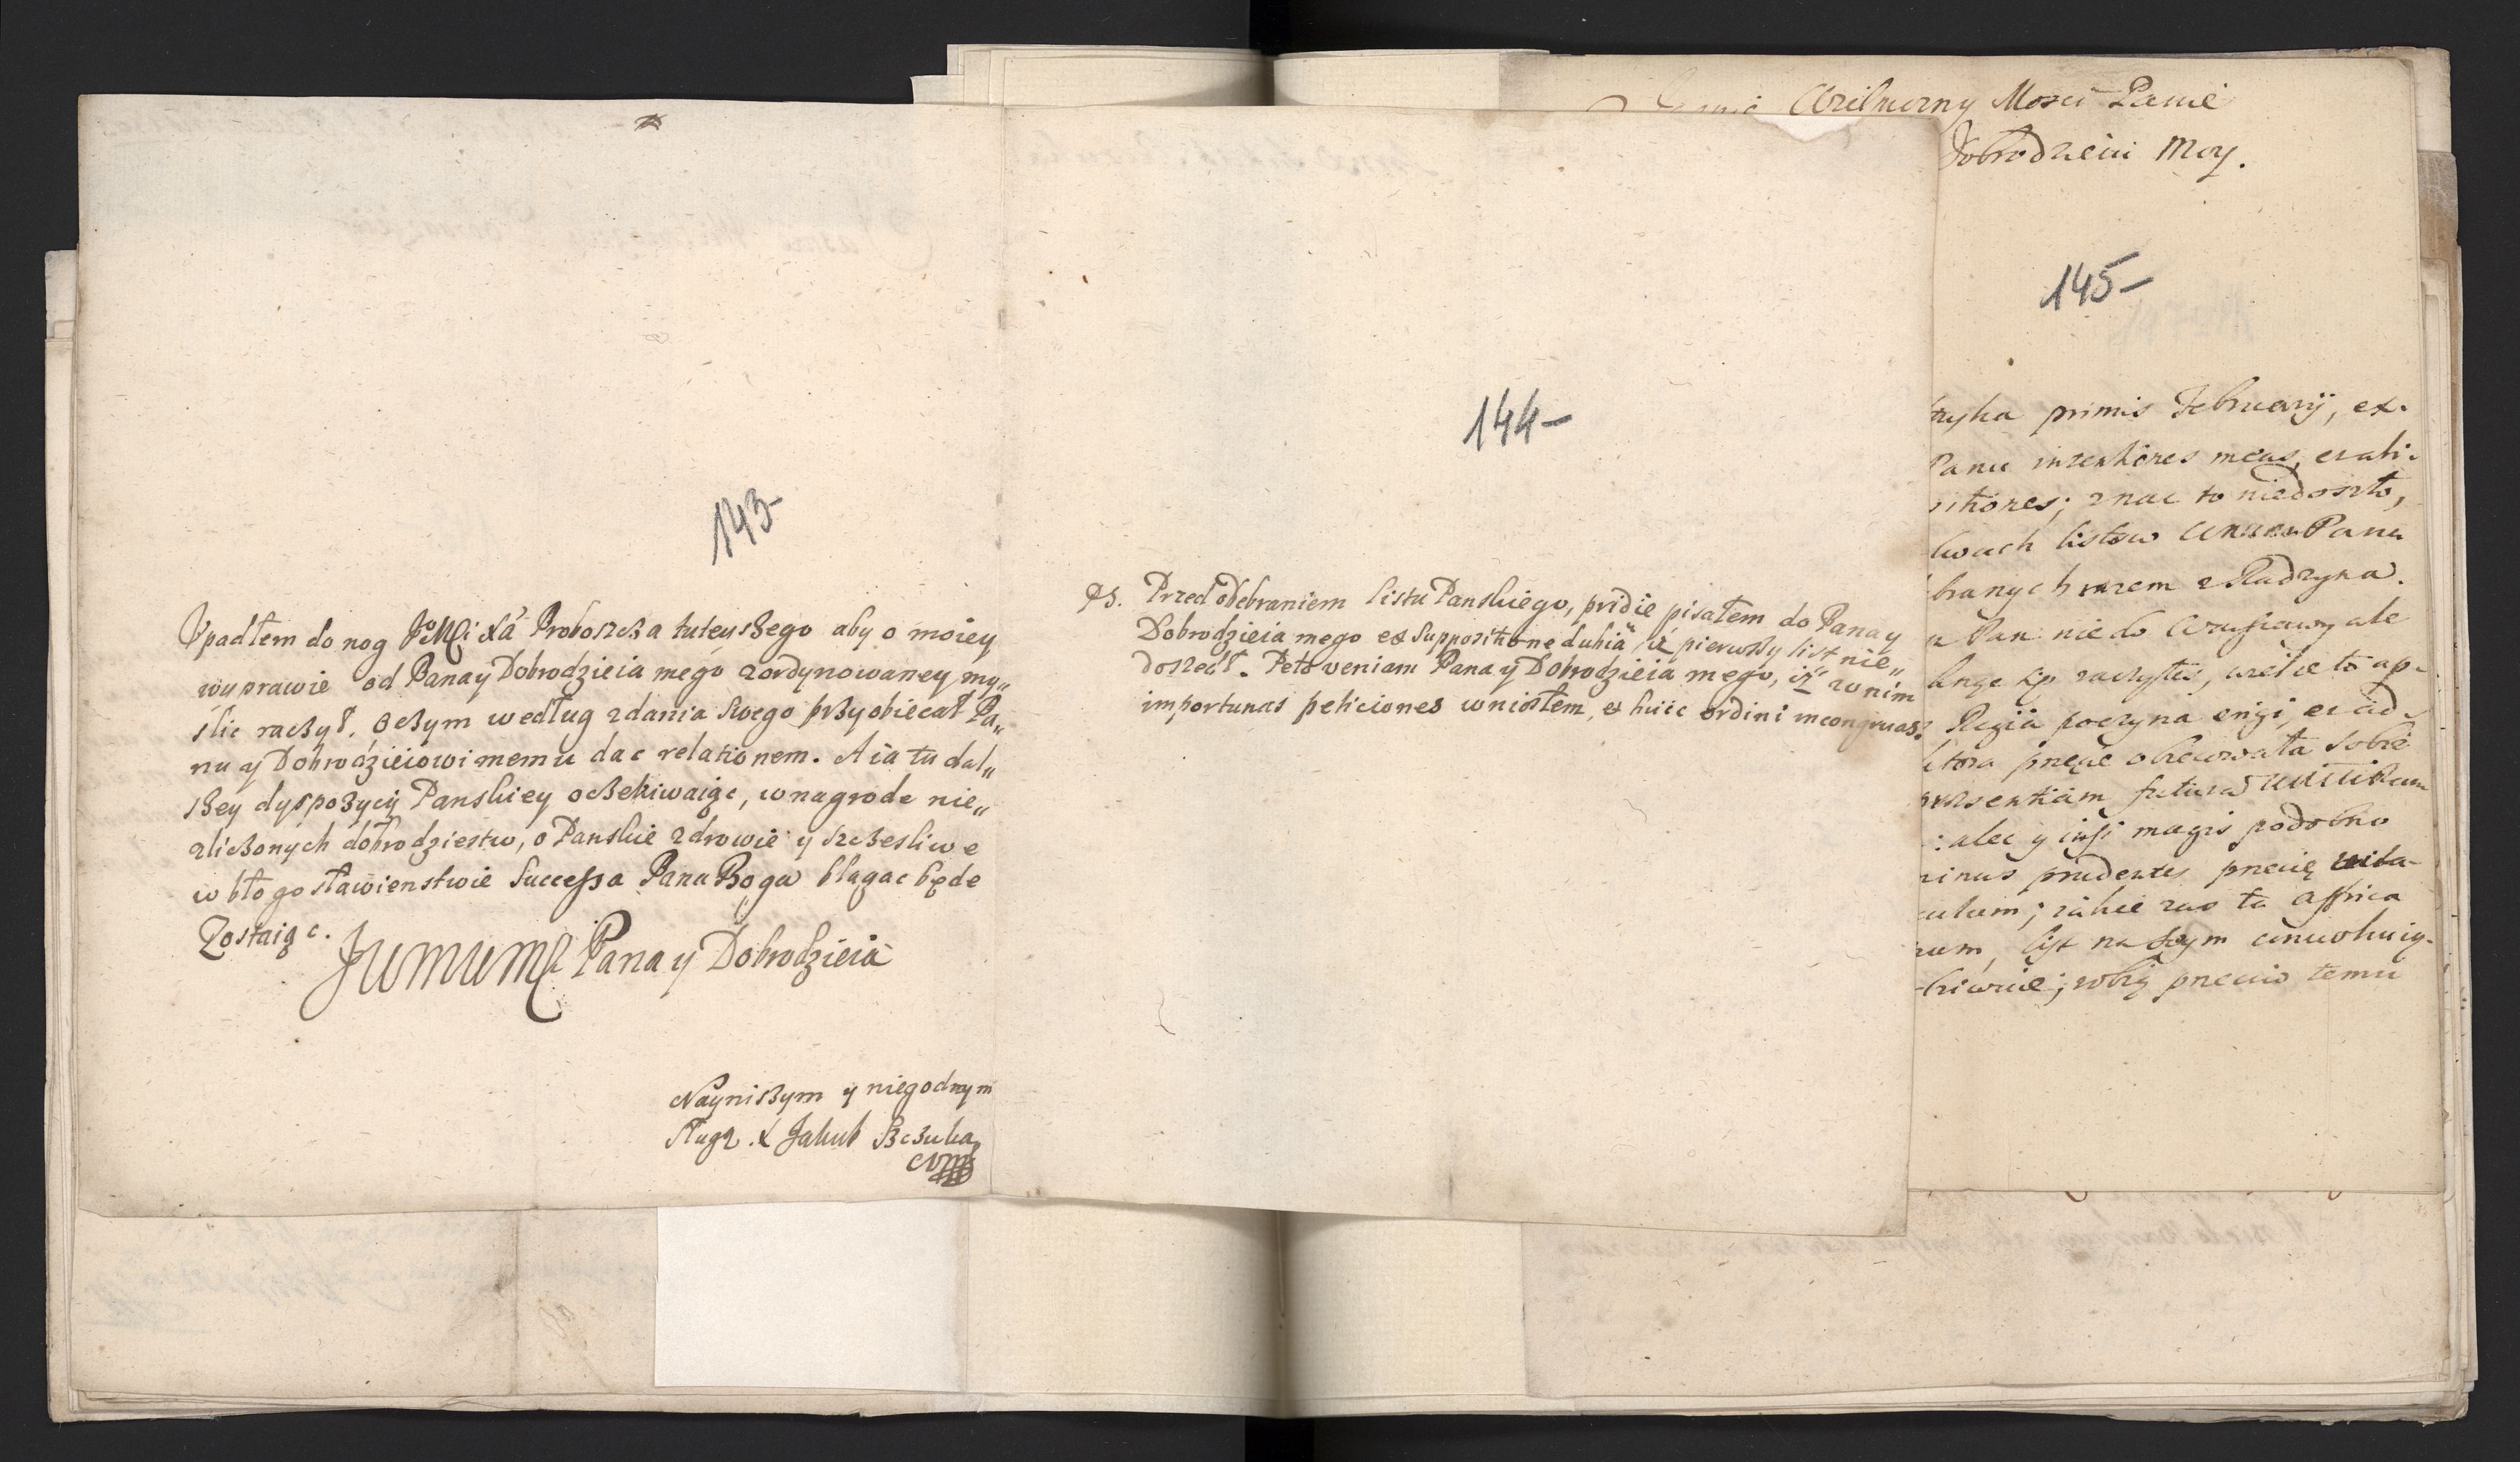 143-
Upadłem do nog JoMCi Xa Proboszcza tuteyszego aby o moiey
wyprawie od Pana y Dobrodzieia mego zordynowaney my„
slic raczył. Oczym według zdania swego przyobiecał Pa„
nu y Dobrodzieiowi memu dac relationem. A ia tu dal„
szey dyspozycij Panskiey oczekiwaiąc, w nagrode nie„
zliczonych dobrodziestw, o Panskie zdrowie y szczesliwe
w błogosławienstwie Successa Pana Boga błagac będe
Zostaiąc.
JWMWM Pana y Dobrodzieia
Nayniszym y niegodnym
sługą X Jakub
144-
PS. Przed odebraniem listu Panskiego, pridie pisałem do Pana y
Dobrodzieia mego ex suppositione dubia iż pierwszy list nie„
doszedł. Peto veniam Pana y Dobrodzieia mego, iż w nim
importunas peticiones wniosłem, et huic ordini incongruas.
Wielmozny Mosci Panie
Dobrodzieiu Moy.
145-
primis Februarij, ex-
Panu intentiones meas, et ali-
znac to niedoszło,
listow Pana
branych razem z Radzyna.
Pan nie do Warszawy ale
raczyłes, to ap-
Regia poczyna erigi, et
ktora obiecowała sobie
futura
: alec y inszi magis podobno
prudentes
; iakie zas ta
list na Seym
; robię temu